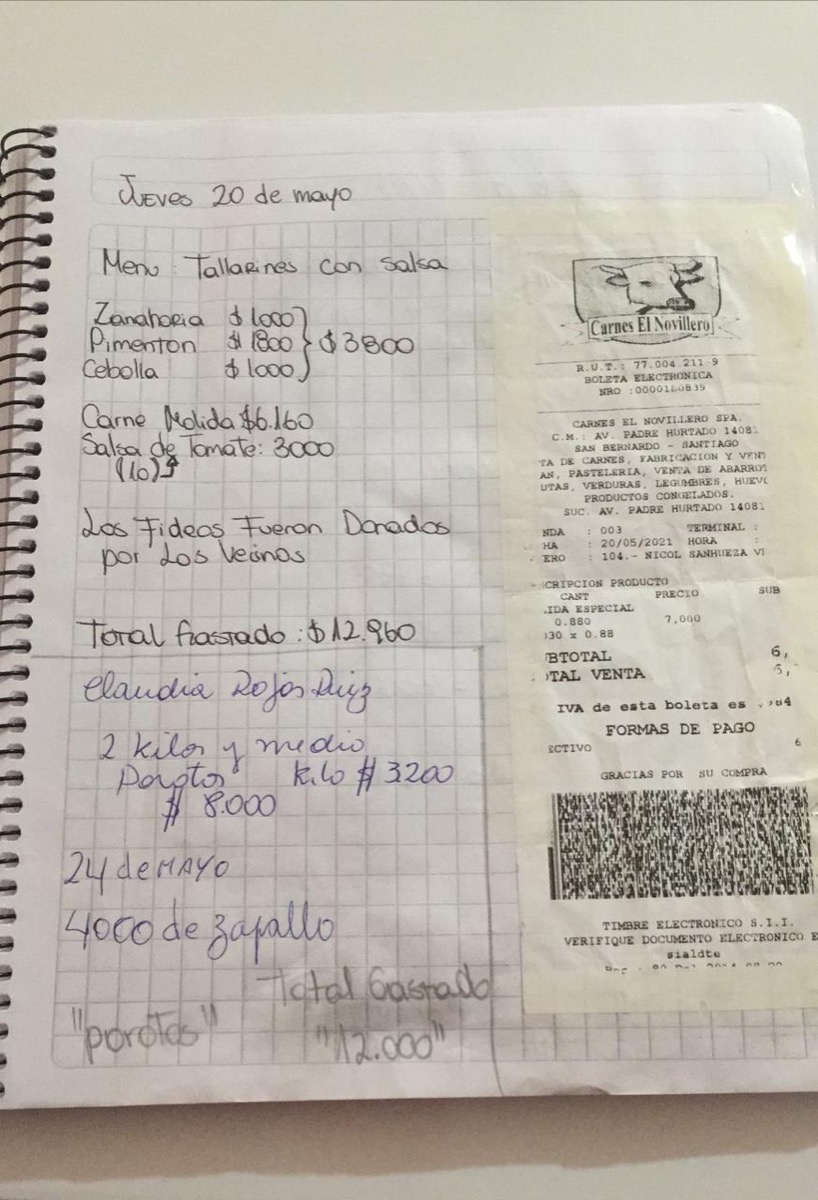 Jueves 20 de mayo
Menu: Tallarines con salsa
Zanahoria $1000
Pimenton $1800 } $3800
Cebolla $1000
Carne Molida $6.160
Salsa de Tomate: 3000
(10)
Los Fideos Fueron Donados
por Los Vecinos
Total Gastado: $12.960
Claudia Rojas Ruiz
2 kilos y medio
Porotos kilo $3200
$ 8.000
24 de MAYO
4000 de zapallo
Total Gastado
"porotos" "12.000"
Carnes El Novillero
R.U.T.: 77.004.211-9
BOLETA ELECTRONICA
NRO :0000180839
CARNES EL NOVILLERO SPA.
C.M.: AV. PADRE HURTADO 14081
SAN BERNARDO - SANTIAGO
TA DE CARNES, FABRICACION Y VENT
AN, PASTELERIA, VENTA DE ABARROT
UTAS, VERDURAS, LEGUMBRES, HUEVO
PRODUCTOS CONGELADOS.
SUC. AV. PADRE HURTADO 14081
NDA : 003 TERMINAL :
HA : 20/05/2021 HORA :
ERO : 104.- NICOL SANHUEZA VI
CRIPCION PRODUCTO
CANT PRECIO SUB
LIDA ESPECIAL
0.880 7,000
30 x 0.88
BTOTAL 6,
TAL VENTA
IVA de esta boleta es
FORMAS DE PAGO
ECTIVO 6
GRACIAS POR SU COMPRA
TIMBRE ELECTRONICO S.I.I.
VERIFIQUE DOCUMENTO ELECTRONICO E
sialdte